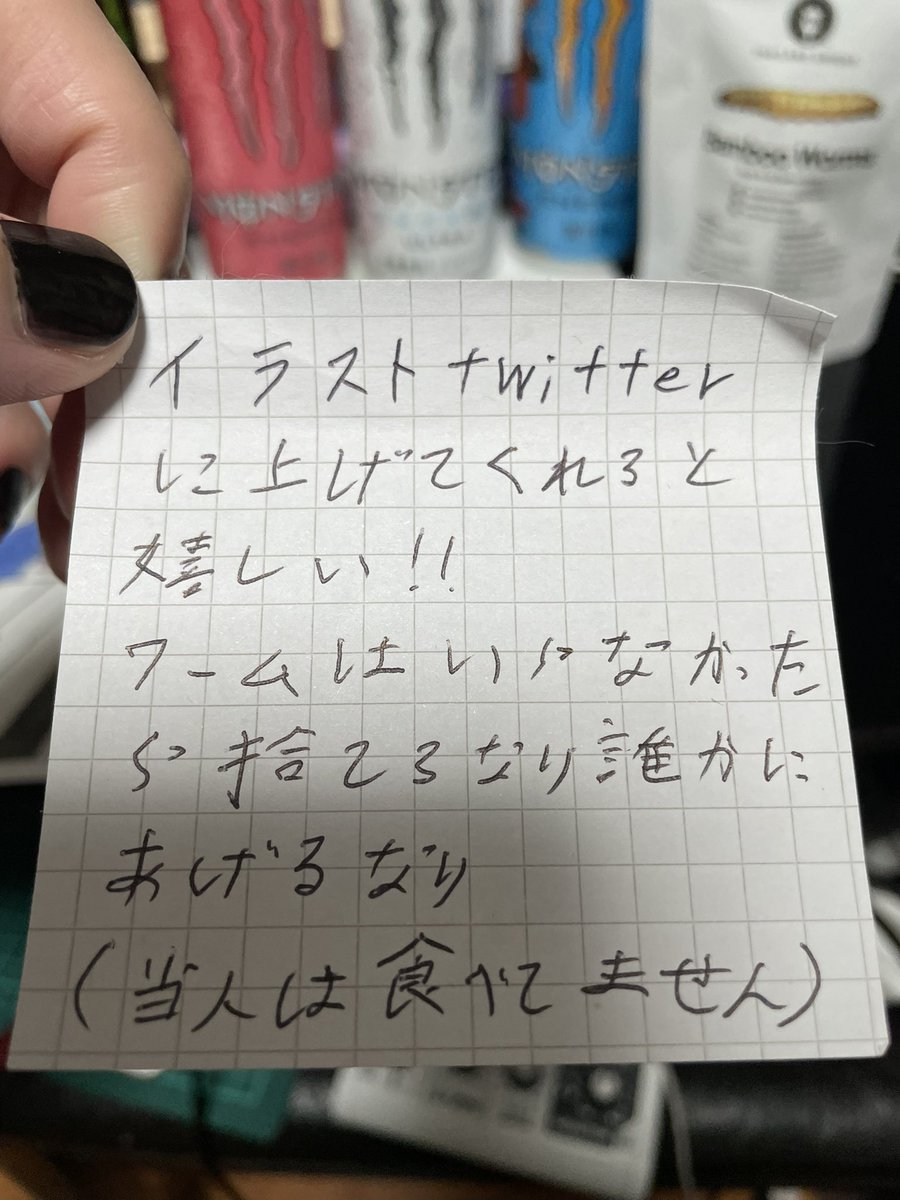 イラスト twitter
に上げてくれると
嬉しい!!
ワームはいらなかった
ら捨てるなり誰かに
あげるなり
(当人は食べてません)
MONSTER
MONSTER
MONSTER
Bamboo Worms